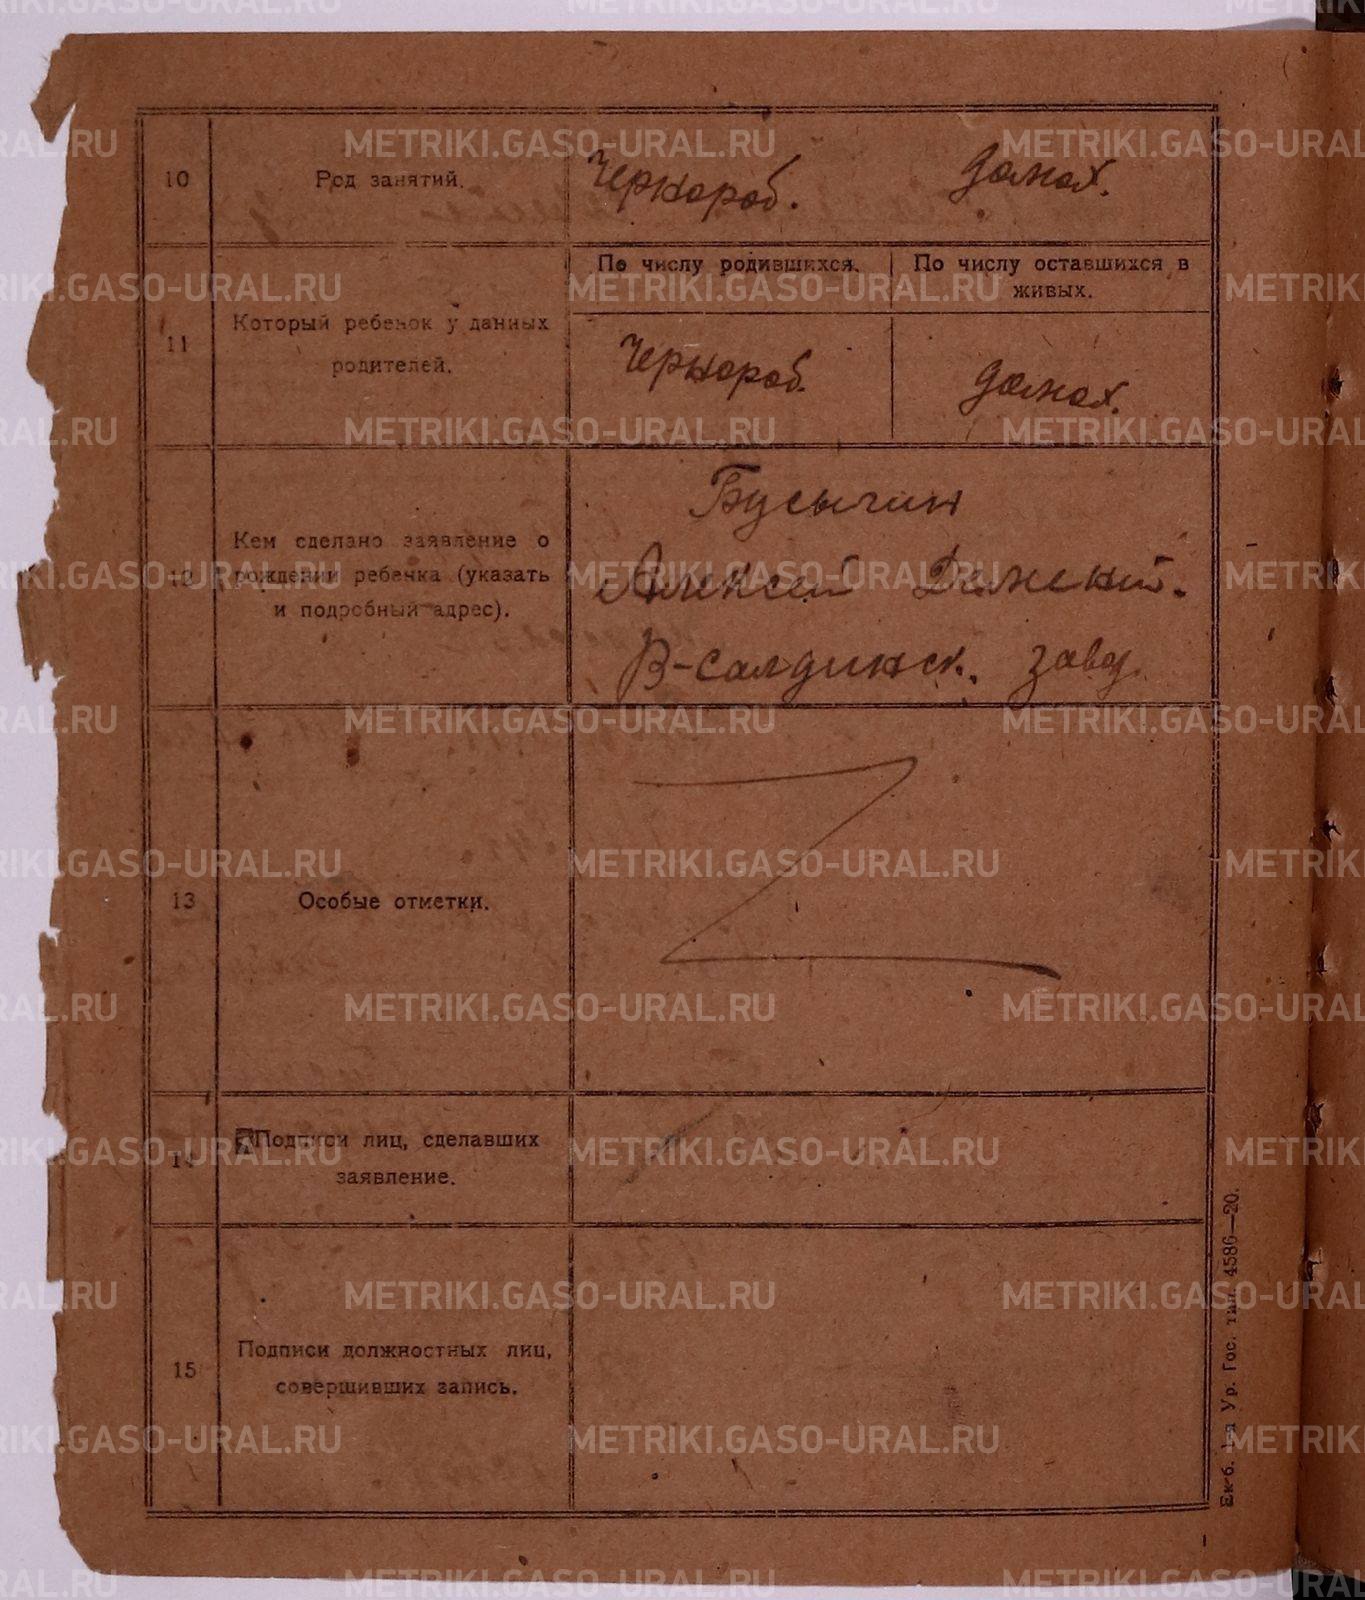 10 Род занятий. Чернораб. домох.
По числу родившихся. По числу оставшихся в
живых.
11 Который ребенок у данных
родителей.
Чернораб. домох.
12 Кем сделано заявление о
рождении ребенка (указать
и подробный адрес).
Бусыгин
Алексей
В-Салдинск. завод.
13 Особые отметки.
14 Подписи лиц, сделавших
заявление.
15 Подписи должностных лиц,
совершивших запись.
Ек'б. 1-я Ур. Гос. тип. 4586—20.
METRIKI.GASO-URAL.RU